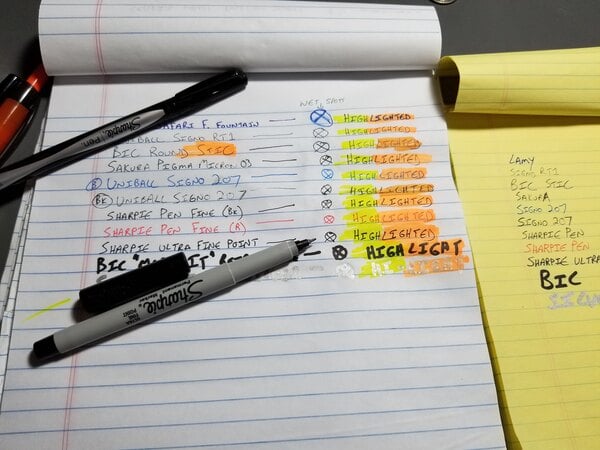 WET SPOT
AFARI F. FOUNTAIN HIGHLIGHTED
BALL SIGNO RT1 HIGHLIGHTED
BIC ROUND STIC HIGHLIGHTED
SAKURA PIGMA MICRON 03 HIGHLIGHTED
(B) UNIBALL SIGNO 207 HIGHLIGHTED
(BK) UNIBALL SIGNO 207 HIGHLIGHTED
SHARPIE PEN FINE (BK) HIGHLIGHTED
SHARPIE PEN FINE (R) HIGHLIGHTED
SHARPIE ULTRA FINE POINT HIGHLIGHTED
BIC HIGHLIGHT
Sharpie Pen
Sharpie
Permanent Marker
ULTRA FINE POINT
LAMY
SIGNO RT1
BIC STIC
SAKURA
SIGNO 207
SIGNO 207
SHARPIE PEN
SHARPIE PEN
SHARPIE ULTRA
BIC